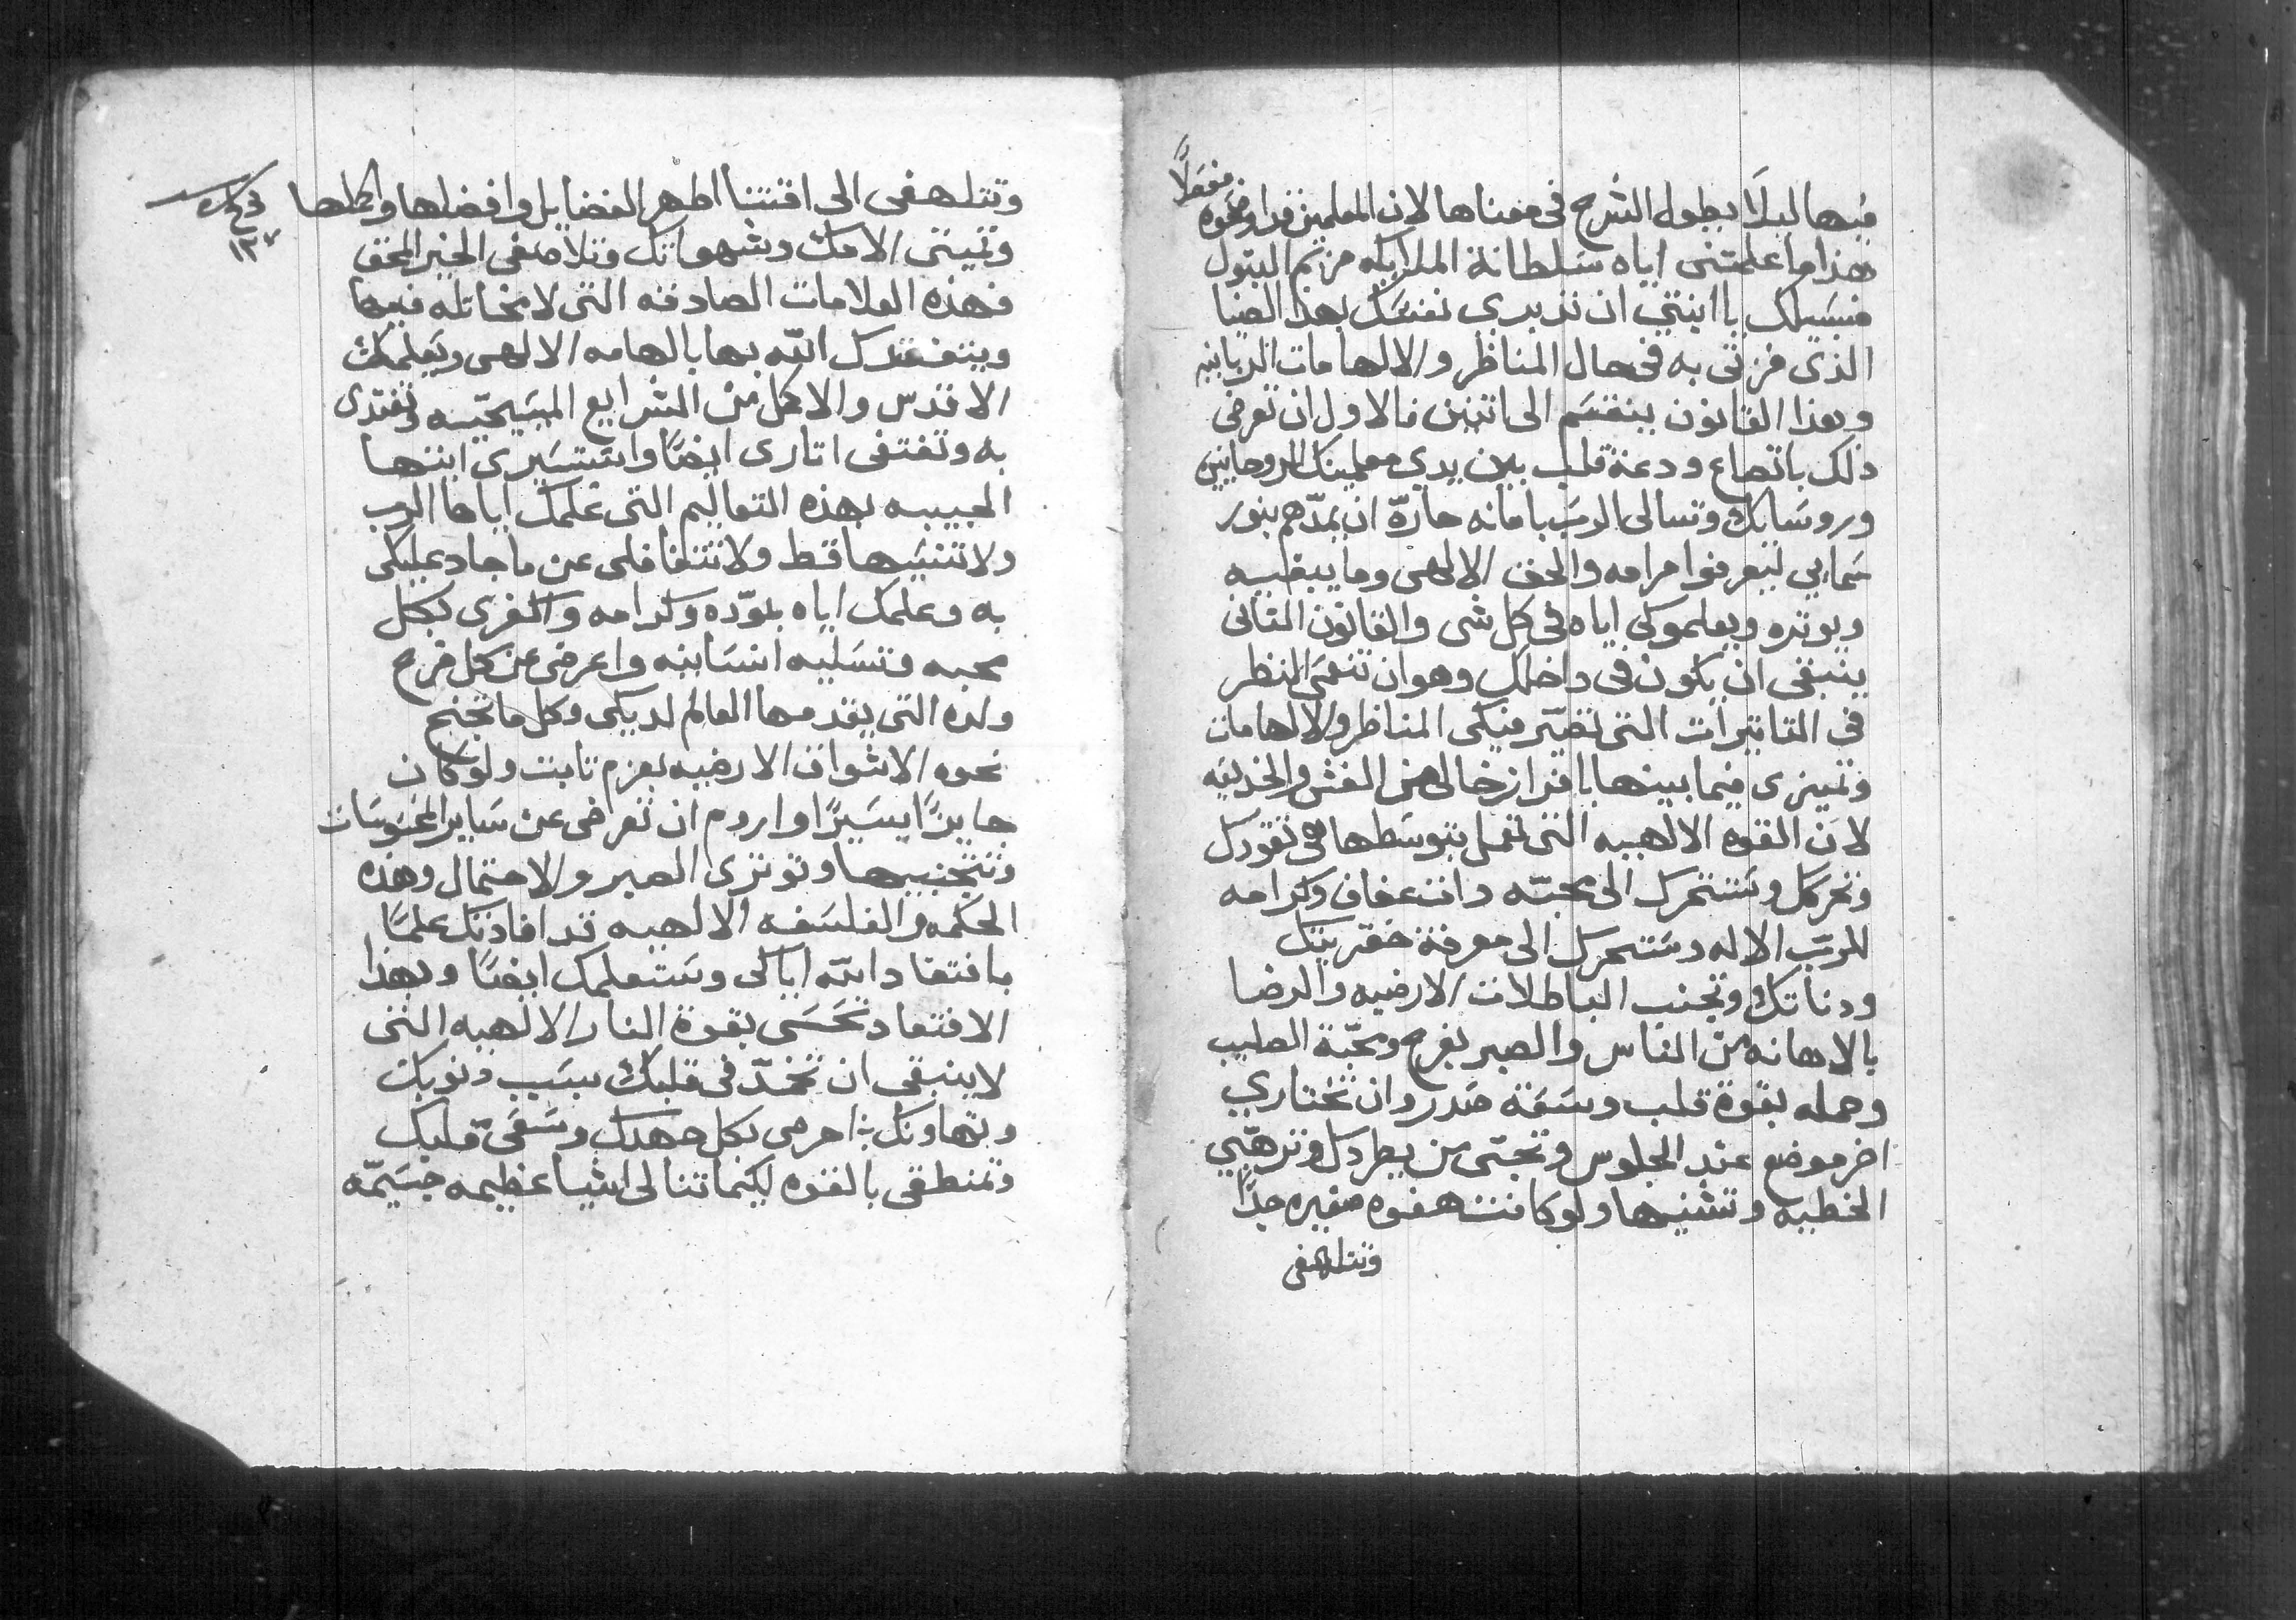 فيها ليلَا يطول الشرح في معناها لان المعلمين قد اوضحوه مفصلًا
هذا ما علمتني اياه سلطانة الملايكه مريم البتول
فسبيلك يا ابنتي ان تدبري نفسك بهذا الضيا
الذي فزتي به في حال المناظر والالهامات الربانيه
وهذا القانون ينقسم الى اتنين فالاول ان تعرضي
ذلك باتضاع ودعة قلب بين يدي معلمينك الروحانيين
وروسايك وتسالي الرب بامانه حارّه ان يمدّهم بنور
سمايي ليعرفوا مرامه والحق الالهي وما يبغيه
ويوتره ويعلموكي اياه في كل شي والقانون التاني
ينبغي ان يكون في داخلك وهو ان تنعمي النظر
في التاتيرات التي تصيّر فيكي المناظر والالهامات
وتميزي فيما بينها بافراز خالي من الغش والخديعه
لان القوه الالهيه التي تعمل بتوسطها هي تقودك
وتحركك وستحرك الى محبّه دات عفاف وكرامه
للرب الاله وستحرك الى معرفة حقريتك
ودناتك وتجنب الباطلات الارضيه والرضا
بالاهانه من الناس والصبر بفرح ومحبّة الصليب
وحمله بقوة قلب وسعة صدر وان تختاري
اخر موضع عند الجلوس وتحبّي من يطردك وترهبي
الخطيه وتشنيها ولو كانت هفوه صغيره جدًا
وتتلهفي
وتتلهفي الى اقتنا اطهر الفضايل وافضلها واكملها
وتميتي الامك وشهواتك وتلاصقي الخير المحق
فهذه العلامات الصادقه التي لا مخاتله فيها
ويتفقدك الله بها بالهامه الالهي ويعلمك
الاقدس والاكمل من الشرايع المسيحيّه وتقتدي
به وتقتفي اتاري ايضًا واستسيري ابنتها
الحبيبه بهذه التعاليم التي علمك اياها الرب
ولا تنسيها قط ولا تتغافلي عن ما جاد عليكي
به وعلمك اياه بمودّه وكرامه واكفري بكل
محبه وتسليه انسانيه واعرضي عن كل فرح
ولده التي يقدمها العالم لديكي وكل ما تجنح
نحوه الاشواق الارضيه بعزم تابت ولو كان
جايزًا يسيرًا واروم ان تعرضي عن ساير المحسوسات
وتتجنبيها وتوتري الصبر والاحتمال وهذه
الحكمه والفلسفه الالهيه قد افادتك علمًا
بافتقاد الله اياكي وستعلمك ايضًا وبهذا
الافتقاد تحسي بقوة النار الالهيه التي
لا ينبغي ان تخمدّ في قلبك بسبب دنوبك
وتهاونك احرصي بكل جهدك وسعي قلبك
وتمنطقي بالقوه ليكيما تنالي اشيا عظيمه جسيمّه
١٣٧